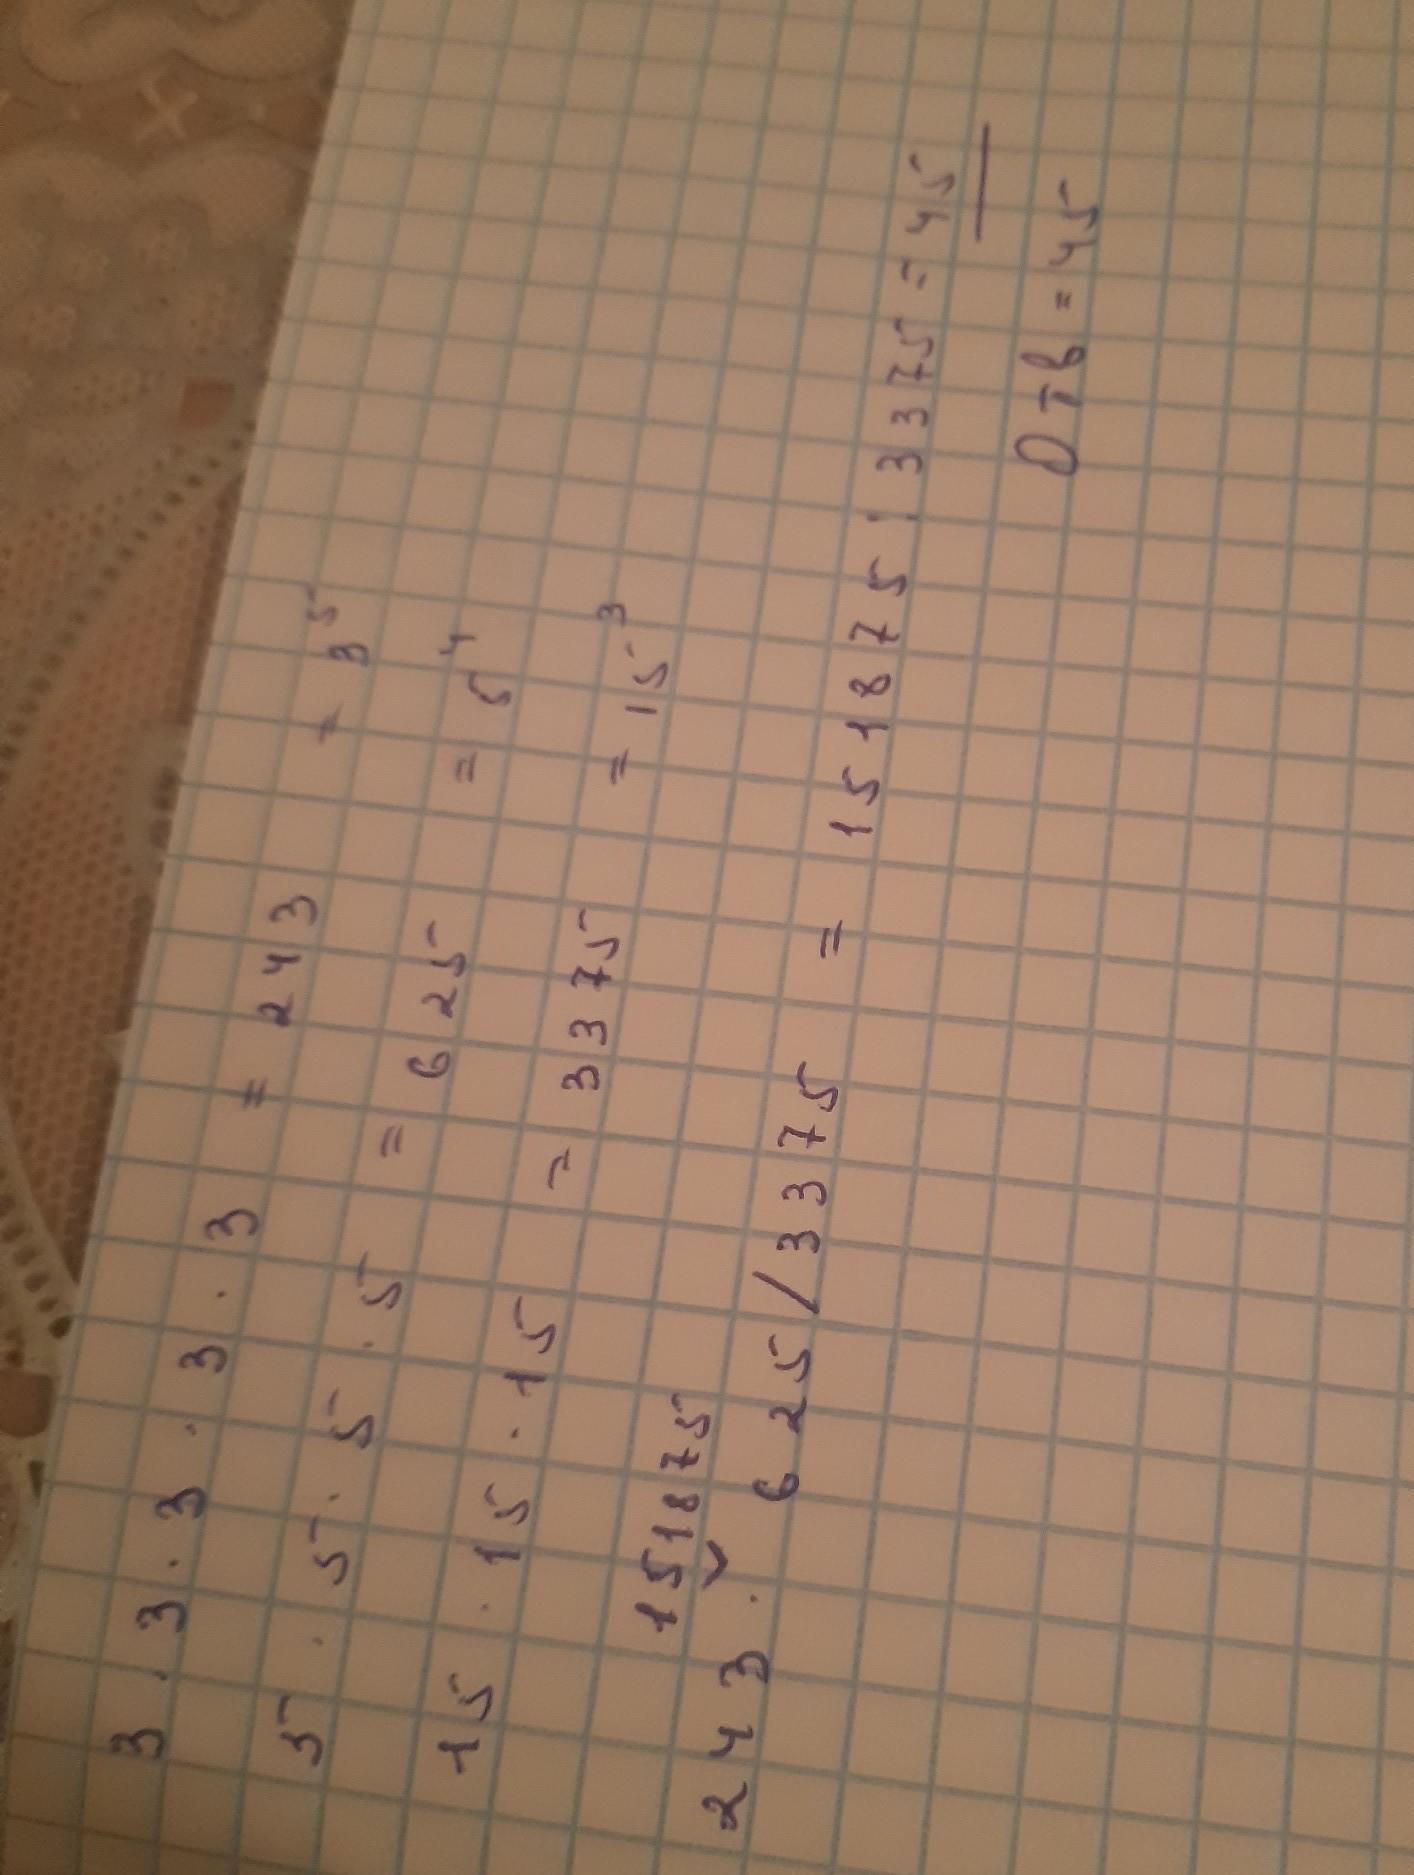 3 · 3 · 3 · 3 · 3 = 243 = 3⁵
5 · 5 · 5 · 5 = 625 = 5⁴
15 · 15 · 15 = 3375 = 15³
151875
243 · 625 / 3375 = 151875 : 3375 = 45
Отв = 45